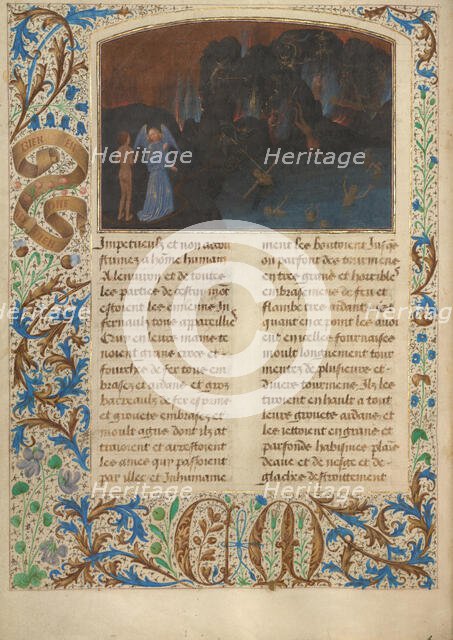 BIEN EN
Heritage Images
Heritage Images
Impetueux et non acou
stumez a home humain
A lenviron et de toutes
les parties de cestuy mot
estoient les ennemis Jn
fernaulx tous appareillies
Quy en leurs mains te
noient grans crocs et
fourches de fer tous em
brasez et ardans et gros
barreaulx de fer espime
et grouets embrasez et
moult agus dont ilz at
traioient et arrestoient
les ames quy passoient
par illec et Inhumaine
ment les boutoient Jusqes
ou parfont des tourmens
entre grans et horribles
embrasemens de feu et
flambe tres ardant et
quant en ce point les auoi
ent en celles fournaises
moult longuement tour
mentez de plusieurs et
diuers tourmens Ilz les
tiroient en hault a tout
leurs grouets ardans et
les iettoient en grans et
parfonds habismes plains
deaue et de neige et de
glaches destroittement
Heritage Images
Heritage Images
C M